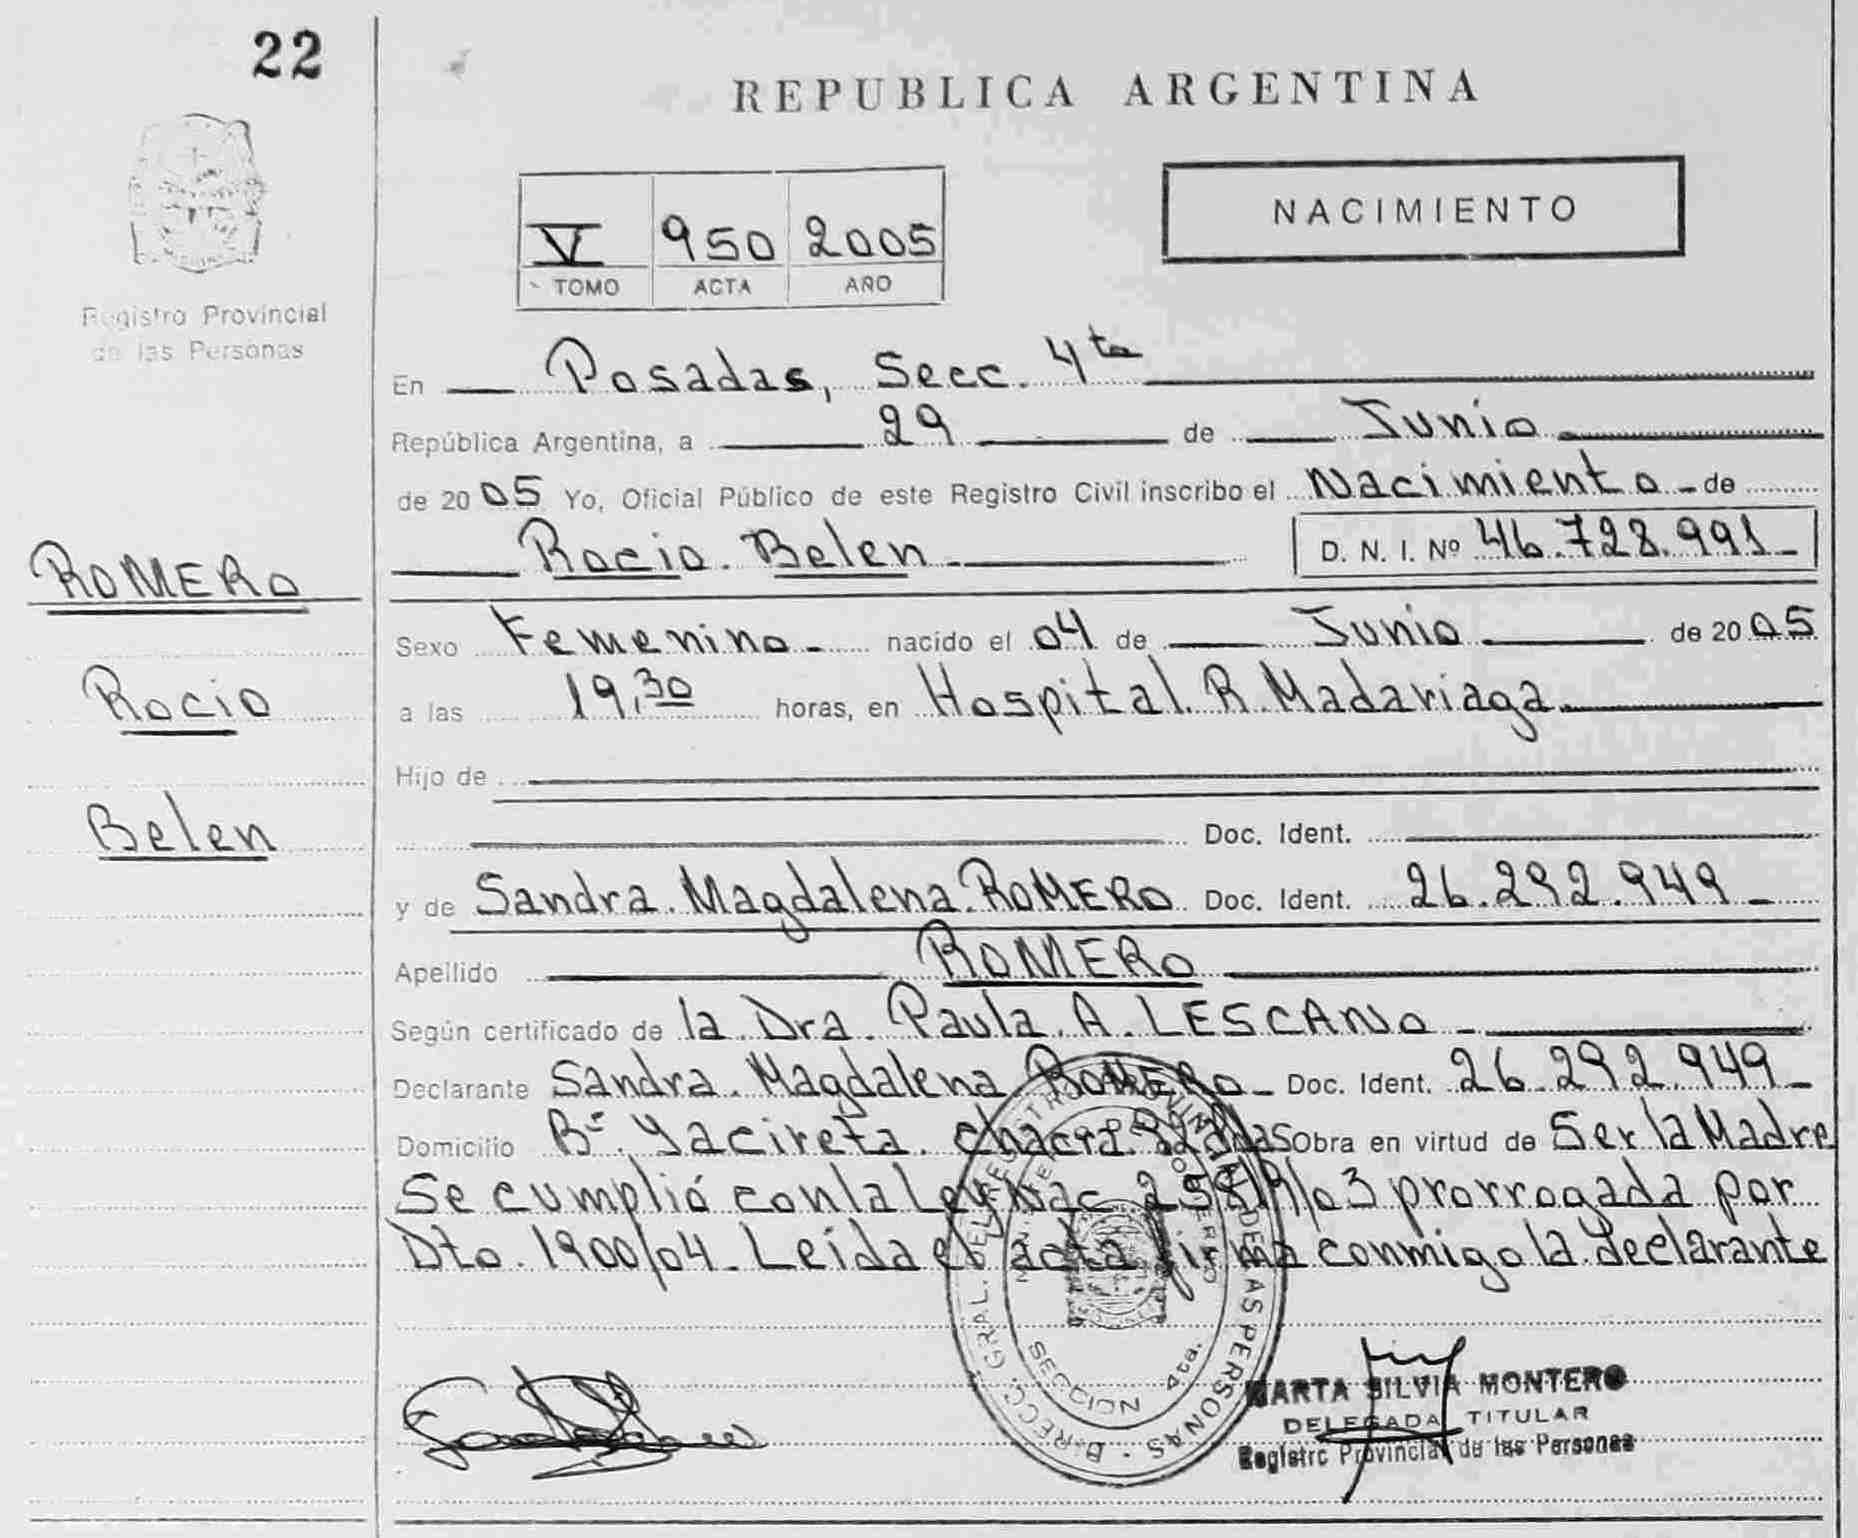 22
REPUBLICA ARGENTINA
NACIMIENTO
V 950 2005
TOMO ACTA AÑO
Registro Provincial
de las Personas
En Posadas, Secc. 4ta
República Argentina, a 29 de Junio
de 2005 Yo, Oficial Público de este Registro Civil inscribo el Nacimiento - de
Rocio Belen - D. N. I. Nº 46.728.991 -
ROMERO
Rocio
Belen
Sexo Femenino - nacido el 04 de Junio de 2005
a las 19,30 horas, en Hospital R. Madariaga
Hijo de
Doc. Ident.
y de Sandra Magdalena ROMERO Doc. Ident. 26.292.949 -
Apellido ROMERO
Según certificado de la Dra. Paula A. LESCANO -
Declarante Sandra Magdalena ROMERO - Doc. Ident. 26.292.949 -
Domicilio Bº Yacireta chacra Obra en virtud de Ser la Madre
Se cumplió con la Ley Nac 25819/03 prorrogada por
Dto. 1900/04. Leída el acta firma conmigo la declarante
DIRECC. GRAL. DEL REGISTRO PROVINCIAL DE LAS PERSONAS
SECCION 4ta.
MARTA SILVIA MONTERO
DELEGADA TITULAR
Registro Provincial de las Personas